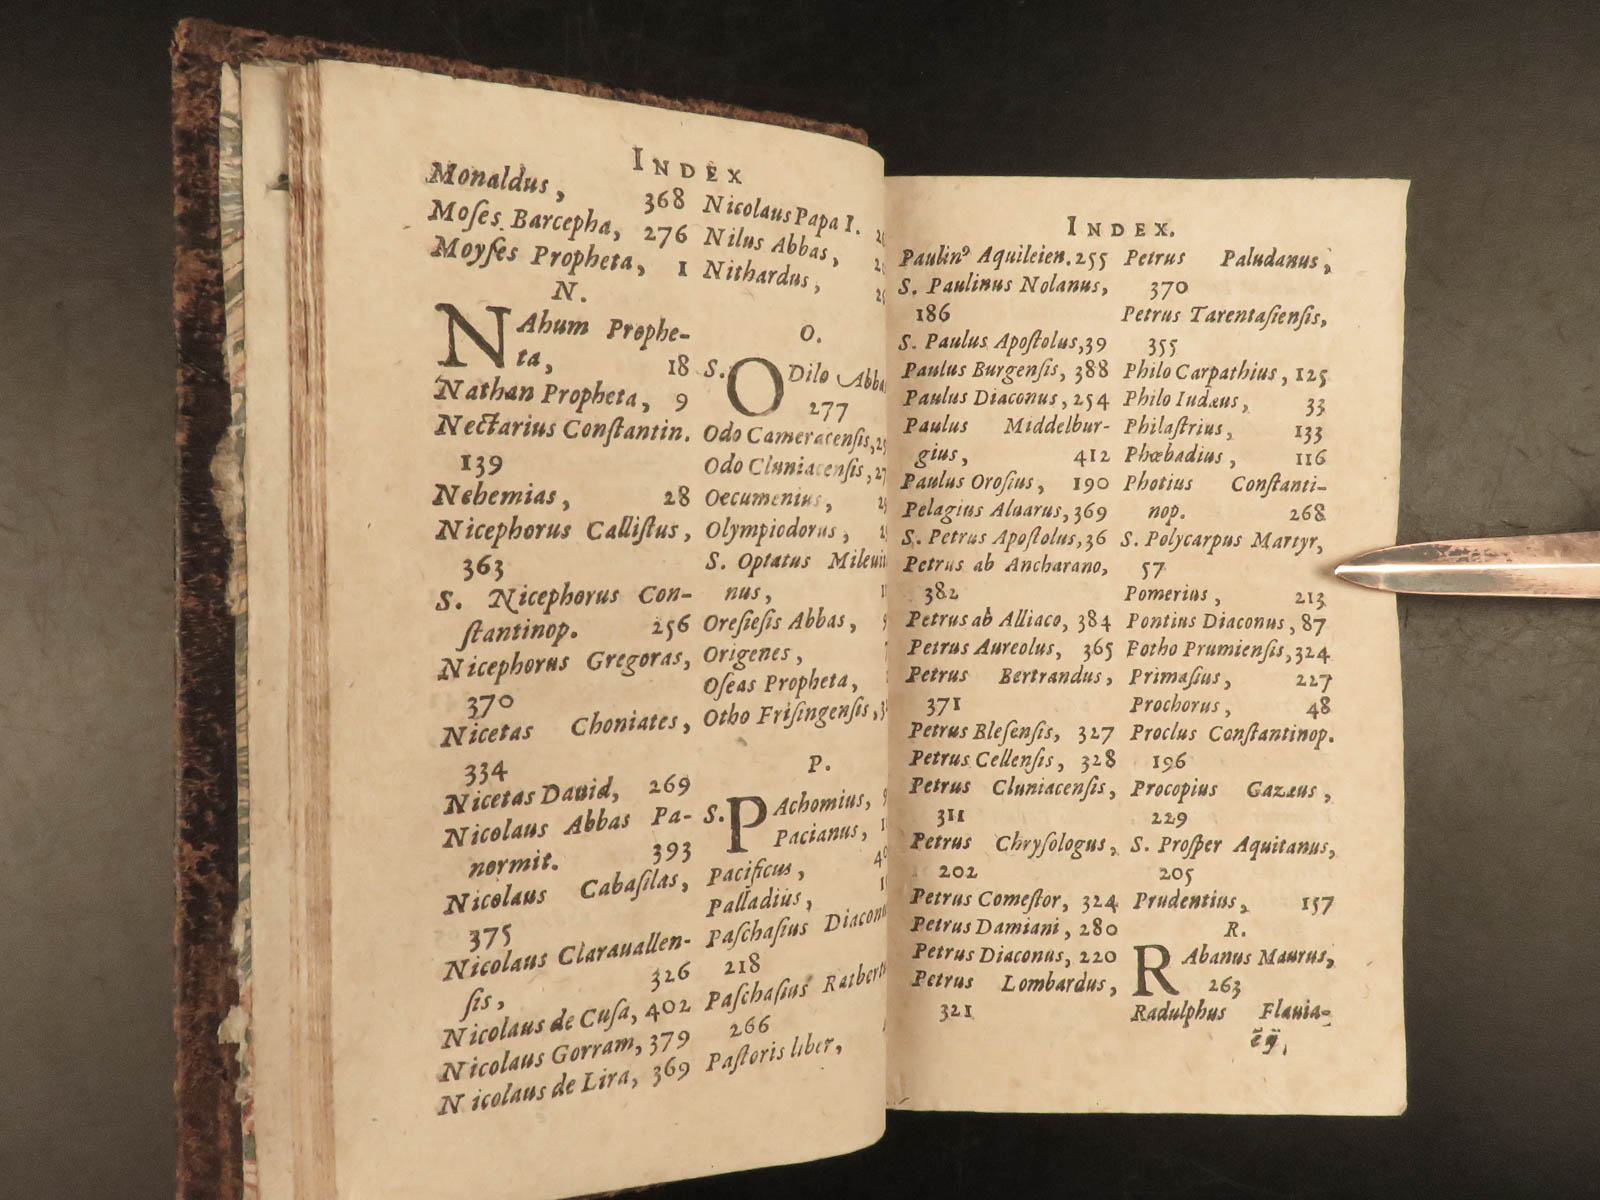 INDEX
Monaldus, 368
Moſes Barcepha, 276
Moyſes Propheta, 1
N.
NAhum Prophe-
ta, 18
Nathan Propheta, 9
Nectarius Conſtantin.
139
Nehemias, 28
Nicephorus Calliſtus,
363
S. Nicephorus Con-
ſtantinop. 256
Nicephorus Gregoras,
370
Nicetas Choniates,
334
Nicetas Dauid, 269
Nicolaus Abbas Pa-
normit. 393
Nicolaus Cabaſilas,
375
Nicolaus Clarauallen-
ſis, 326
Nicolaus de Cuſa, 402
Nicolaus Gorram, 379
Nicolaus de Lira, 369
Nicolaus Papa I.
Nilus Abbas,
Nithardus,
O.
S. ODilo Abba
277
Odo Cameracenſis,
Odo Cluniacenſis,
Oecumenius,
Olympiodorus,
S. Optatus Mileui
nus,
Oreſieſis Abbas,
Origenes,
Oſeas Propheta,
Otho Friſingenſis,
P.
S. PAchomius,
Pacianus,
Pacificus,
Palladius,
Paſchaſius Diacon
218
Paſchaſius Ratbert
266
Paſtoris liber,
INDEX.
Paulinꝰ Aquileien. 255
S. Paulinus Nolanus,
186
S. Paulus Apoſtolus, 39
Paulus Burgenſis, 388
Paulus Diaconus, 254
Paulus Middelbur-
gius, 412
Paulus Oroſius, 190
Pelagius Aluarus, 369
S. Petrus Apoſtolus, 36
Petrus ab Ancharano,
382
Petrus ab Alliaco, 384
Petrus Aureolus, 365
Petrus Bertrandus,
371
Petrus Bleſenſis, 327
Petrus Cellenſis, 328
Petrus Cluniacenſis,
311
Petrus Chryſologus,
202
Petrus Comeſtor, 324
Petrus Damiani, 280
Petrus Diaconus, 220
Petrus Lombardus,
321
Petrus Paludanus,
370
Petrus Tarentaſienſis,
355
Philo Carpathius, 125
Philo Iudæus, 33
Philaſtrius, 133
Phœbadius, 116
Photius Conſtanti-
nop. 268
S. Polycarpus Martyr,
57
Pomerius, 213
Pontius Diaconus, 87
Potho Prumienſis, 324
Primaſius, 227
Prochorus, 48
Proclus Conſtantinop.
196
Procopius Gazæus,
229
S. Proſper Aquitanus,
205
Prudentius, 157
R.
RAbanus Maurus,
263
Radulphus Flauia-